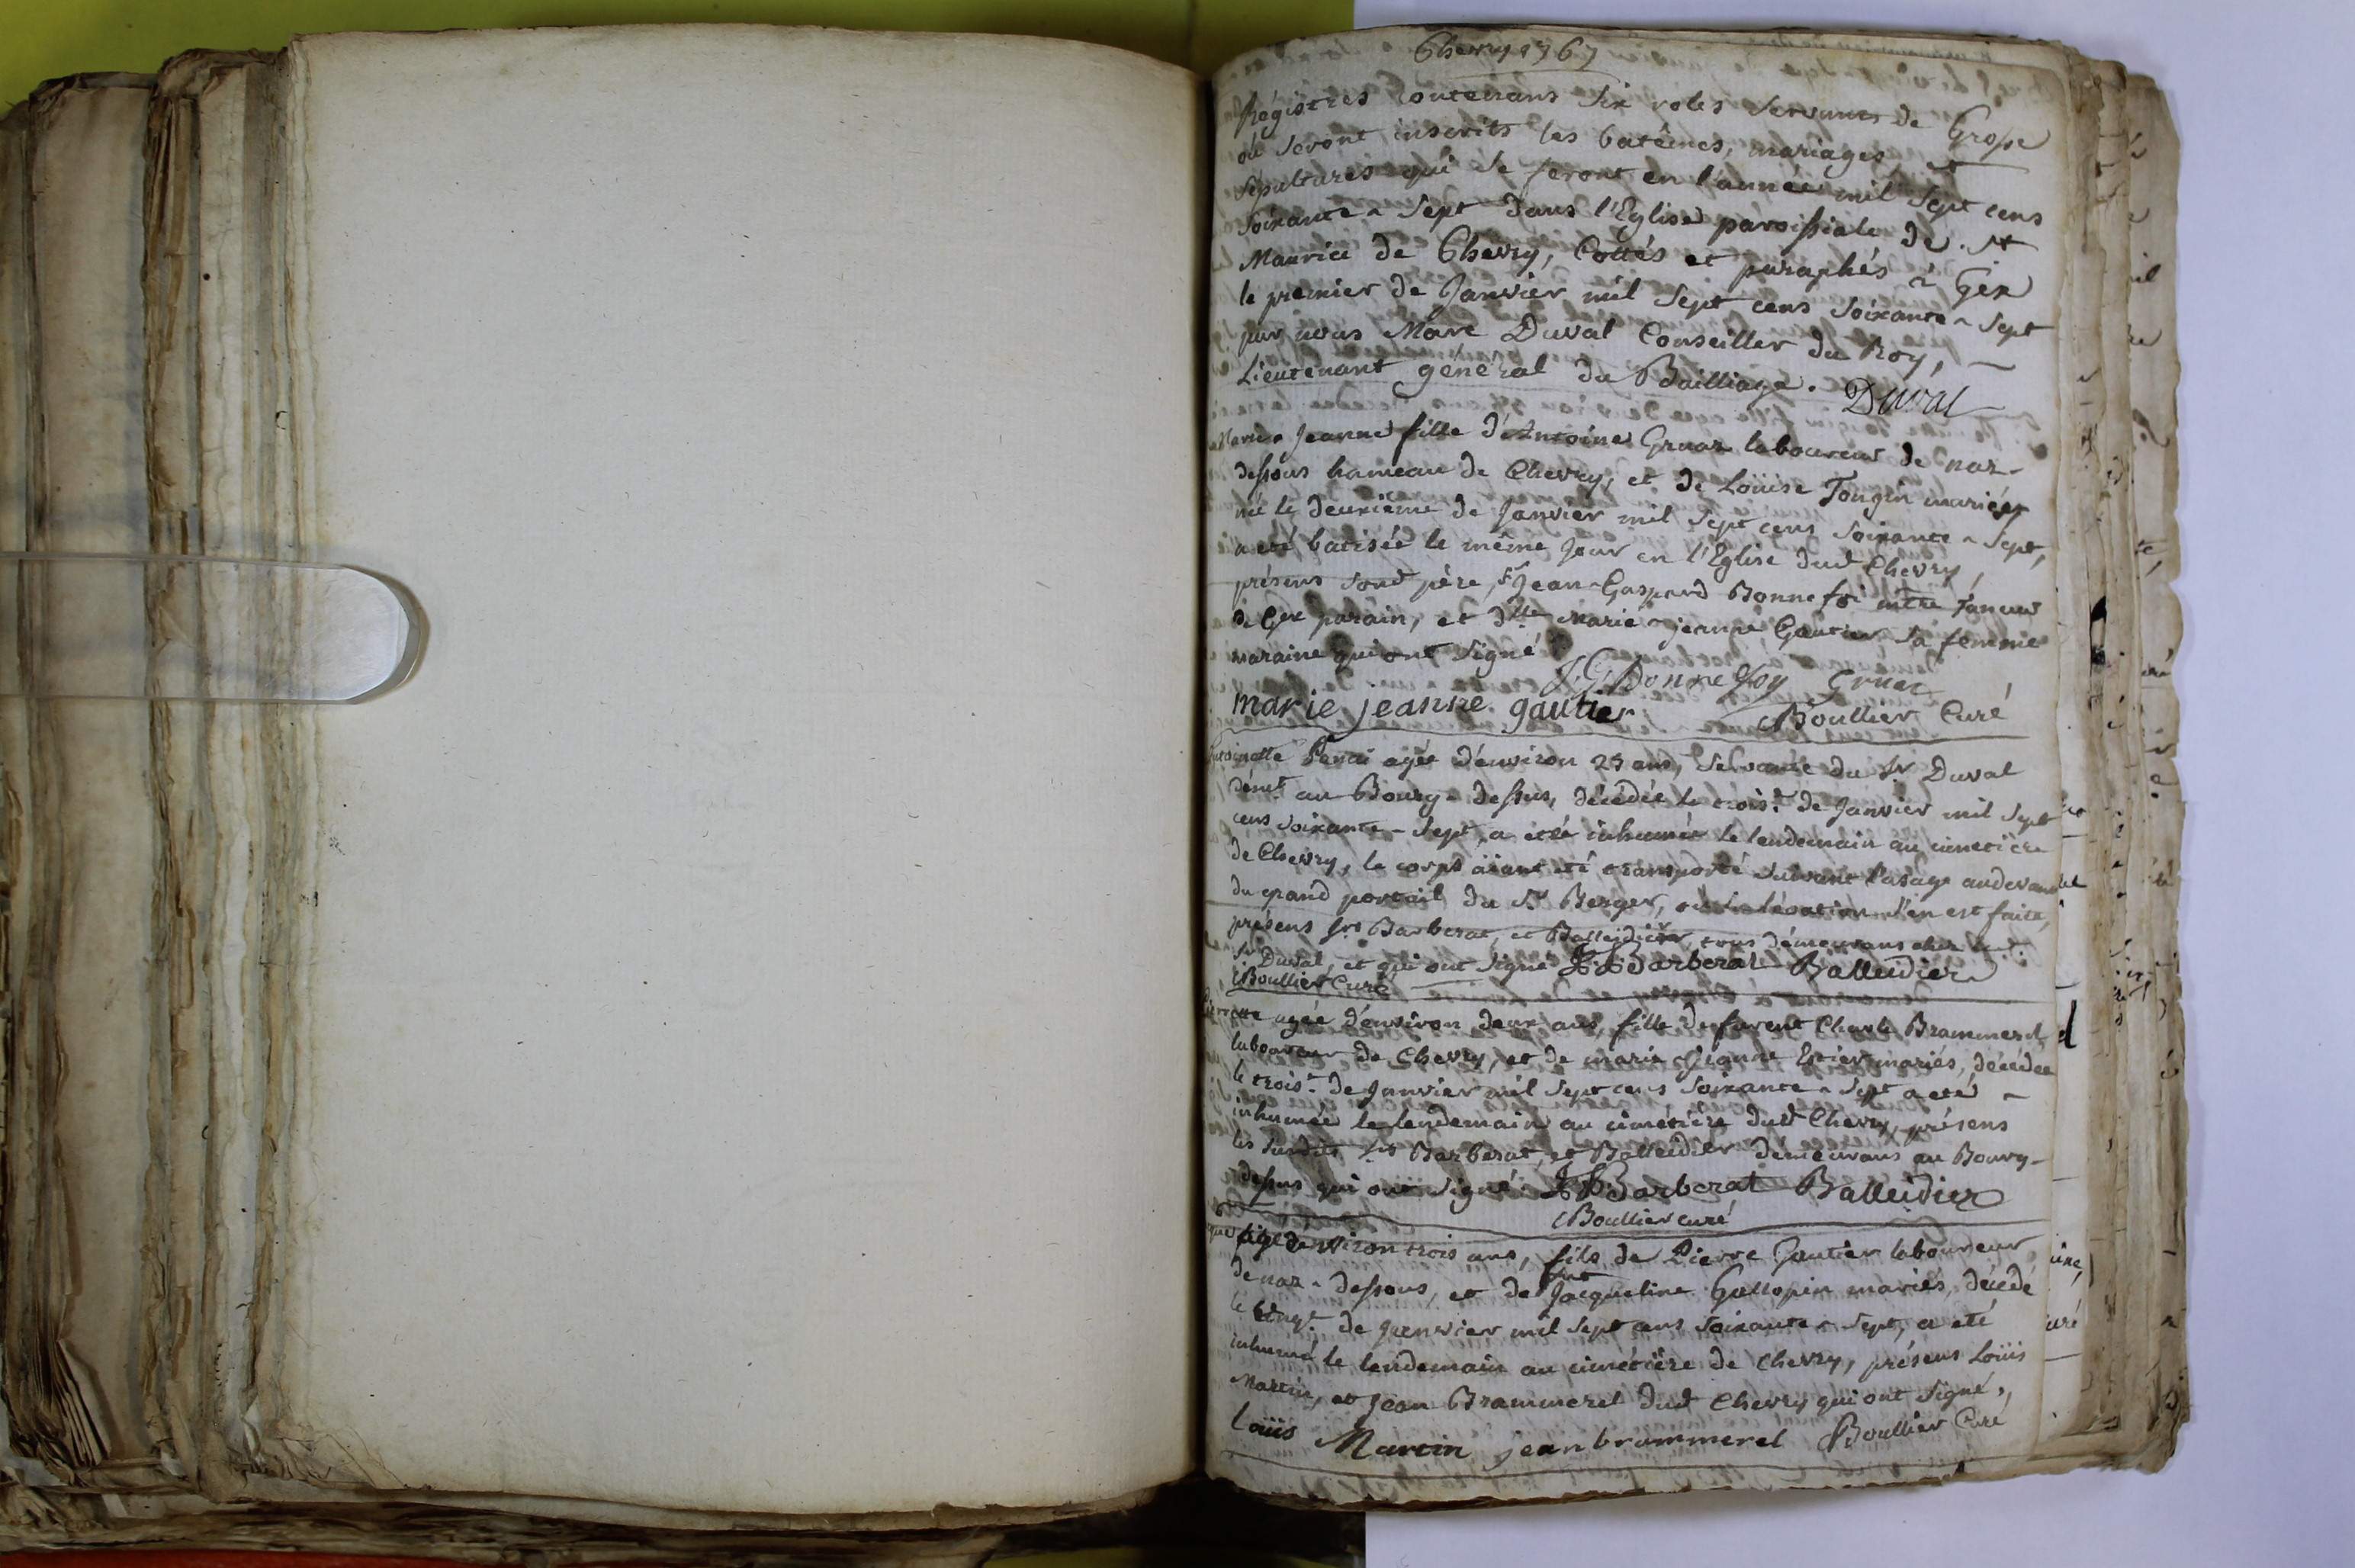 Chevry 1767
Régistres contenans six roles servants de Grosse
où seront inscrits les batêmes, mariages, et
sépultures qui se feront en l'année mil sept cens
soixante-sept dans l'Eglise paroissiale de St
Maurice de Chevry, cottés et paraphés à Gex
le premier de Janvier mil sept cens soixante-sept
par nous Marc Duval Conseiller du Roy,
Lieutenant général du Bailliage. Duval
Jeanne fille d'Antoine Gruaz laboureur de naz-
dessous hameau de Chevry, et de Loüise Tougin mariés
née le deuxième de Janvier mil sept cens soixante-sept,
a eté batisée le même jour en l'Eglise dud Chevry,
présens sond père, Sr Jean-Gaspard Bonnefoi mtre Taneur
de Gex parain, et dlle Marie-jeanne Gautier sa femme
maraine qui ont signé
J. G. Bonnefoy Gruaz
marie jeanne gautier Boullier Curé
agée d'environ 25 ans, servante du Sr Duval
demt au Bourg-dessus, décédée le trois.e de Janvier mil sept
cens soixante-sept, a eté inhumée le lendemain au cimetière
de Chevry, le corps äiant eté transporté suivant l'usage audevant
du grand portail du Sr Berger, où la lévation s'en est faite,
présens Srs Barberat, et Balleidier, tous demeurans chez led
Sr Duval, et qui ont signé Barberat Balleidier
Boullier Curé
agee d'environ deux ans, fille de furent Charle Brammerel
laboureur de Chevry, et de marie Jeanne mariés, décédée
le trois.e de Janvier mil sept cens soixante-sept a eté
inhumée le lendemain au cimétière dud Chevry, présens
les susdits Srs Barberat, et Balleidier demeurans au Bourg-
dessus qui ont signé. Barberat Balleidier
Boullier curé
agé d'environ trois ans, fils de Pierre Gautier laboureur
de naz-dessous, et de fut Jacqueline Gallopin mariés, décédé
le vingt de Janvier mil sept cens soixante-sept, a eté
inhumé le lendemain au cimétière de Chevry, présens Loüis
Martin, et Jean Brammerel dud Chevry qui ont signé,
Loüis Martin jean brammerel Boullier Curé